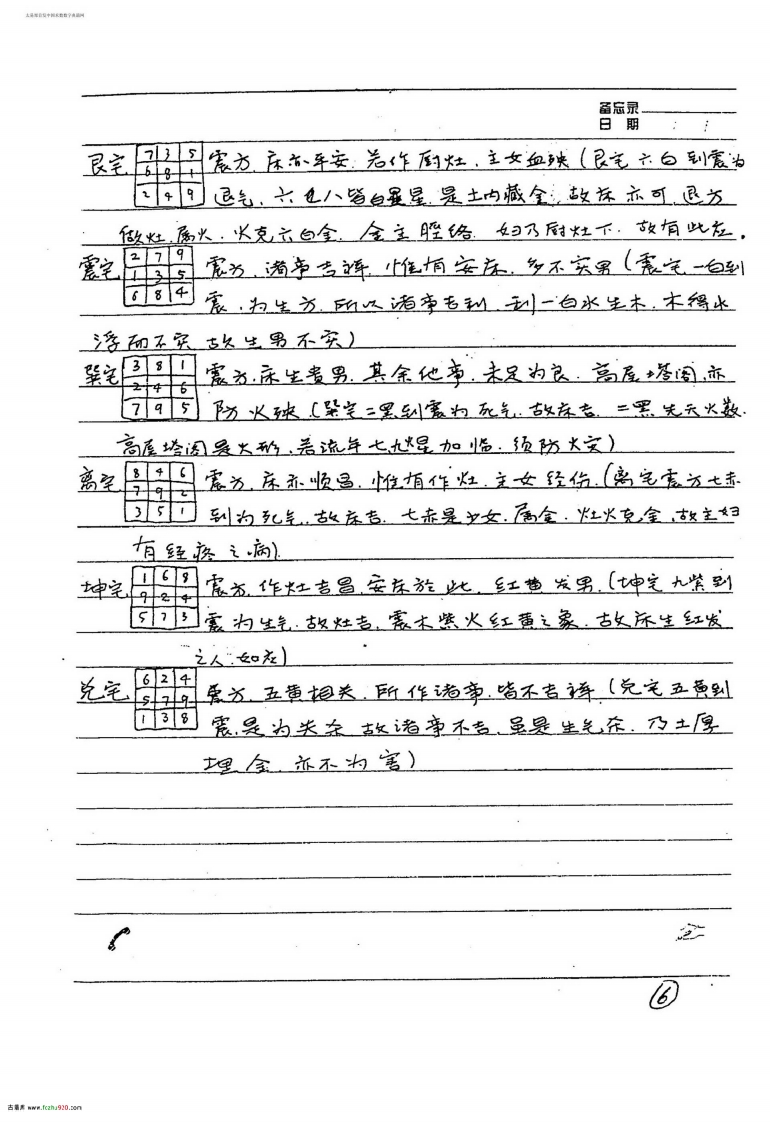 备忘录
日 期
艮宅 7 3 5 震方,床亦平安.若作厨灶,主女血殃(艮宅六白到震为
6 8 1
2 4 9 退气,六七八皆白星.是土内藏金,故床亦可,退方
做灶,属火.火克六白金.金主胫络.妇乃厨灶下.故有此应.
震宅 2 7 9 震方,诸事吉祥.惟有安床,多不实男(震宅一白到
1 3 5
6 8 4 震,为生方.所以诸事吉利.到一白水生木.木得水
浮而不实 故生男不实)
巽宅 3 8 1 震方.床生贵男.其余他事.未足为良.高屋塔阁,亦
2 4 6
7 9 5 防火殃.(巽宅二黑到震为死气.故床吉.二黑先天火数.
高屋塔阁是火形.若流年七九火星加临.须防火灾)
离宅 8 4 6 震方.床亦顺昌.惟有作灶.主女经伤.(离宅震方七赤
7 9 2
3 5 1 到为死气.故床吉.七赤是少女.属金.灶火克金,故主妇
有经疼之病).
坤宅 1 6 8 震方.作灶吉昌.安床於此.红黄发男.(坤宅九紫到
9 2 4
5 7 3 震为生气.故灶吉.震木紫火红黄之象.故床生红发
之人.如应)
兑宅 6 2 4 震方.五黄相关.所作诸事.皆不吉祥(兑宅五黄到
5 7 9
1 3 8 震.是为关杀 故诸事不吉.虽是生气杀.乃土厚
埋金.亦不为害)
6
古易库 www.fozhu920.com